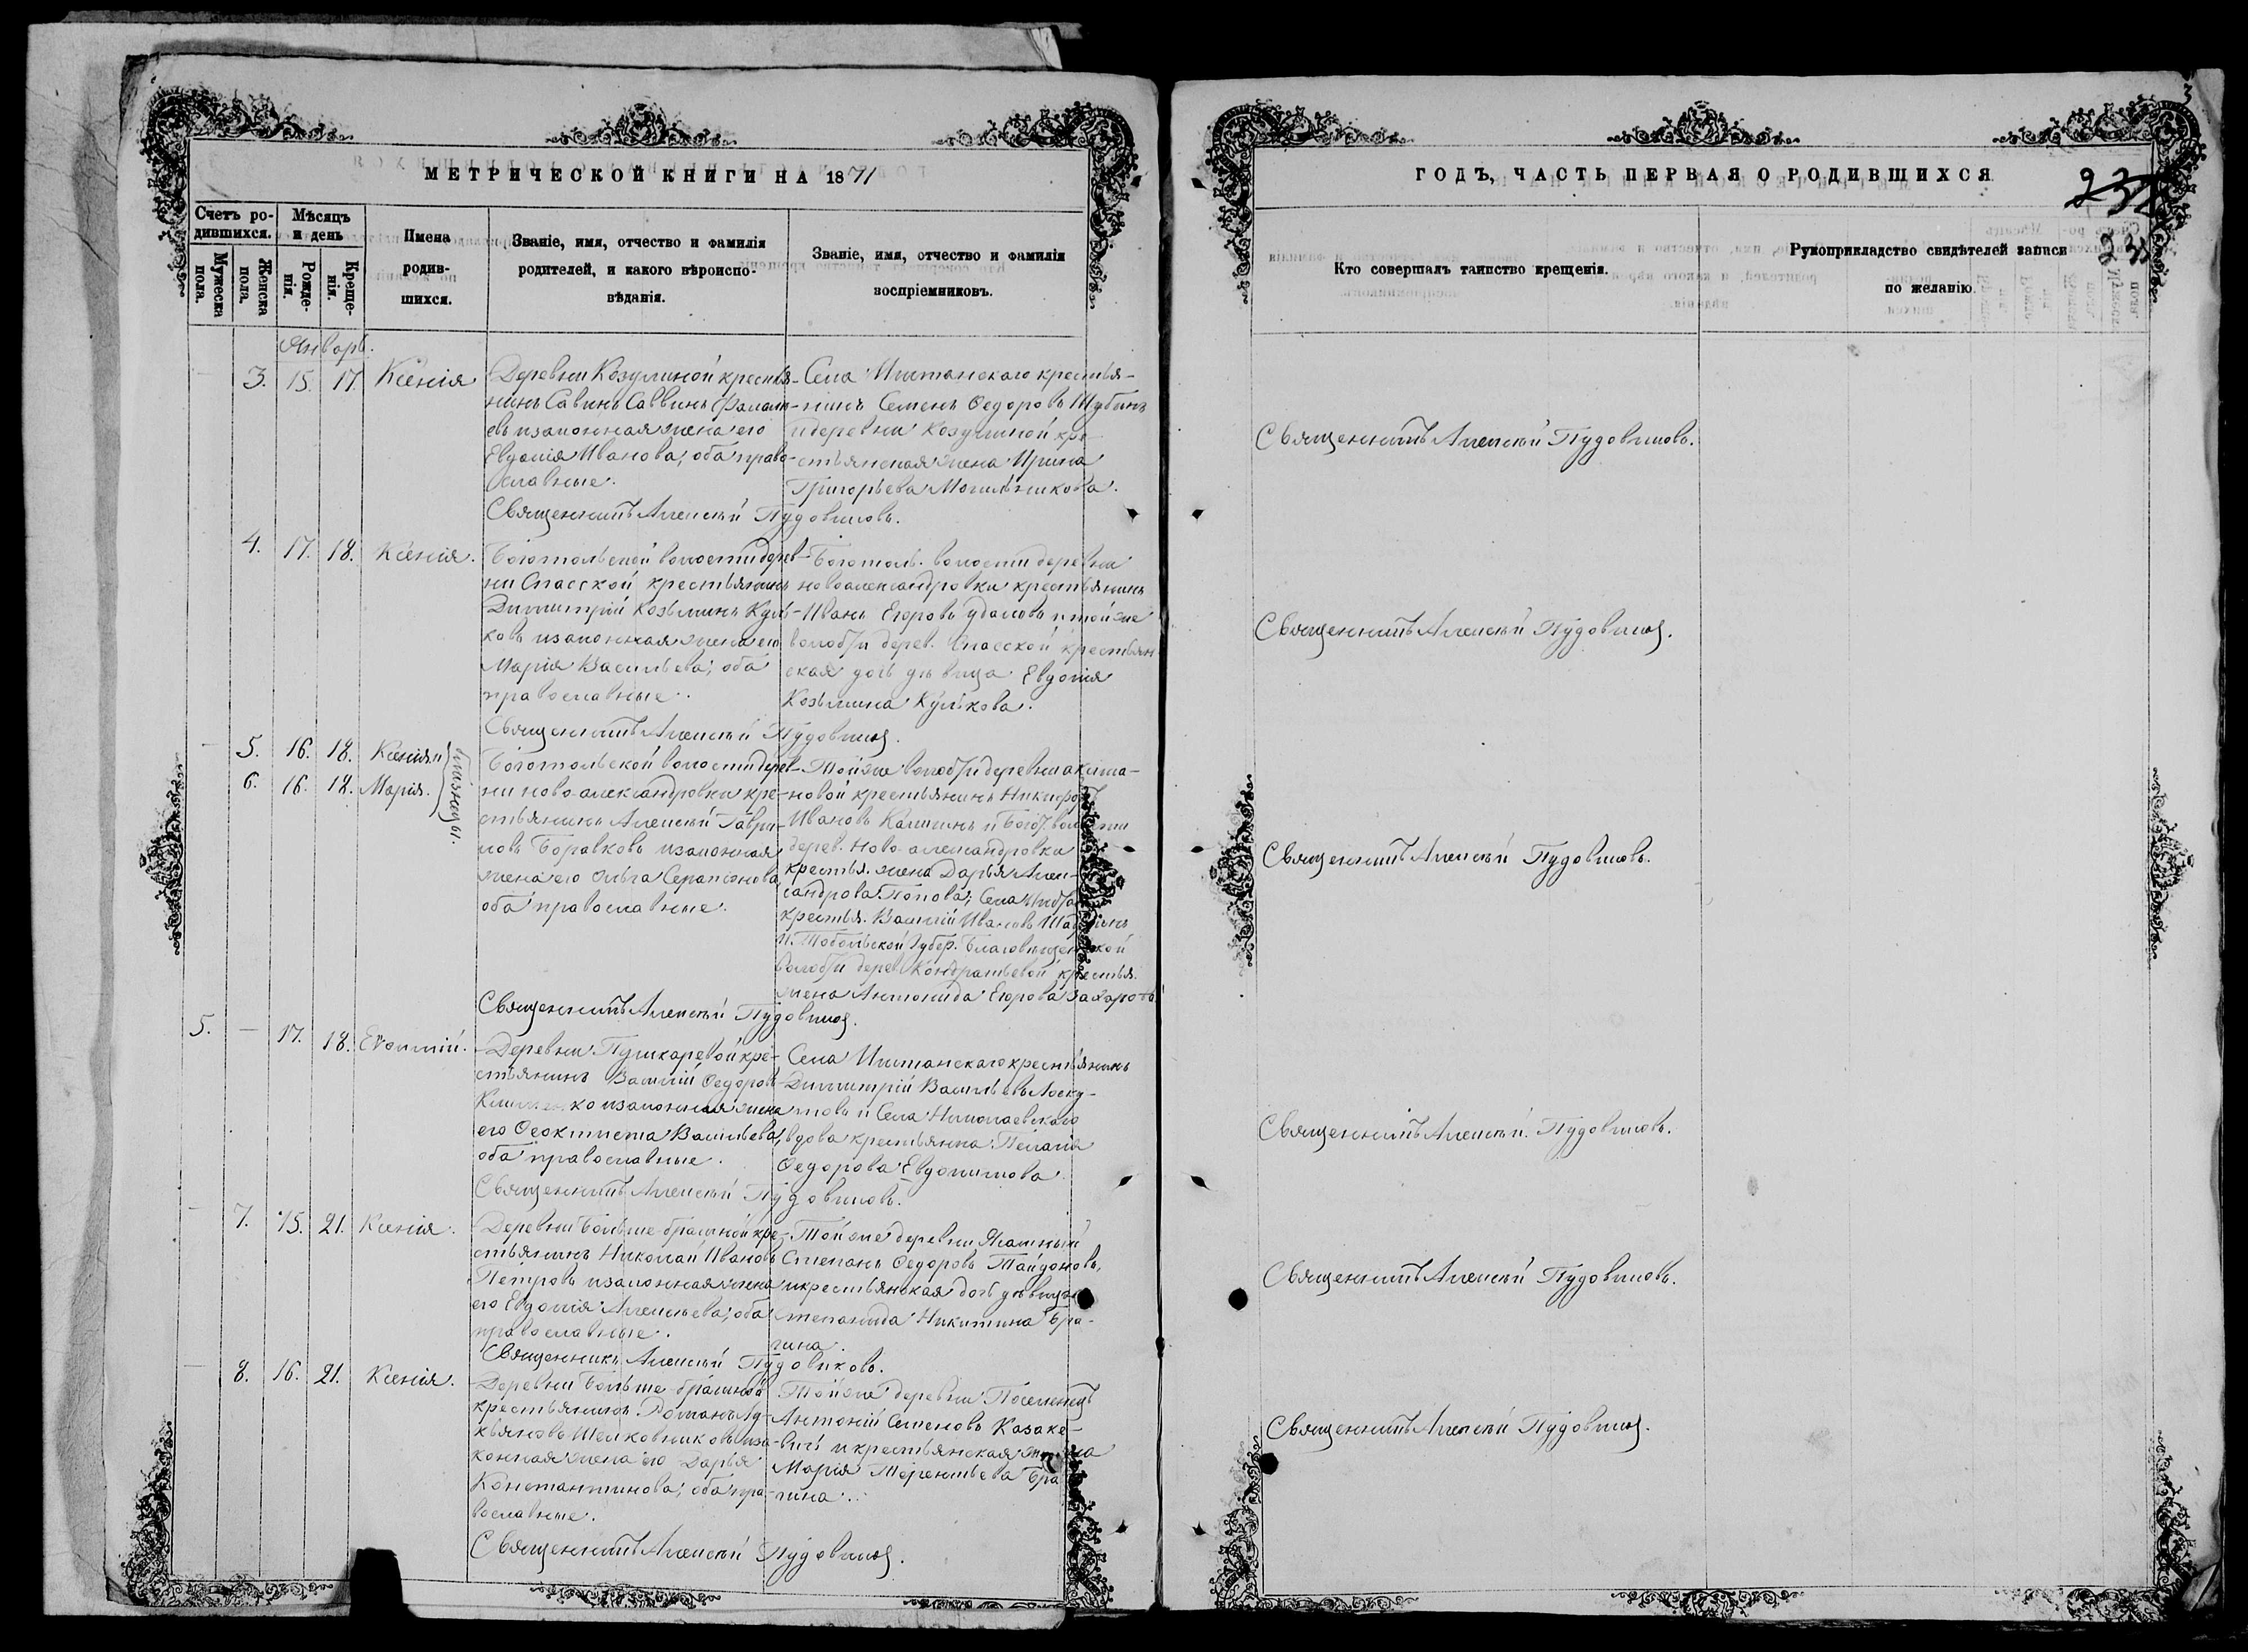 МЕТРИЧЕСКОЙ КНИГИ НА 1871
Счетъ ро-
дившихся.
Мужеска пола.
Женска пола.
Мѣсяцъ
и день
Рожде-
нія.
Креще-
нія.
Имена
родив-
шихся.
Званіе, имя, отчество и фамилія
родителей, и какого вѣроиспо-
вѣданія.
Званіе, имя, отчество и фамилія
воспріемниковъ.
Январь.
3. 15. 17. Ксенія
Деревни Козулиной крестья-
нинъ Савинъ Саввинъ
евъ и законная жена его
Евдокія Иванова; оба право-
славные.
Села Иштанскаго крестья-
нинъ Семенъ Ѳедоровъ Шубинъ
и деревни Козулиной кре-
стьянская жена Ирина
Григорьева Мыльникова.
Священникъ Алексѣй Пудовиковъ.
4. 17. 18. Ксенія.
Боготольской волости дерев-
ни Спасской крестьянинъ
Димитрій Козьминъ Куль-
ковъ и законная жена его
Марія Васильева; оба
православные.
Боготоль. волости деревни
новоалександровки крестьянинъ
Иванъ Егоровъ Удаловъ и той же
волости дерев. Спасской крестьян-
ская дочь дѣвица Евдокія
Козьмина Кулькова.
Священникъ Алексѣй Пудовиковъ.
5. 16. 18. Ксенія и
6. 16. 18. Марія.
близнецы.
Боготольской волости дерев-
ни ново-александровки кре-
стьянинъ Алексѣй Гаври-
ловъ Боравковъ и законная
жена его Ольга Серапіонова
оба православные.
Той же волости деревни акима-
новой крестьянинъ Никифоръ
Ивановъ Калининъ и Бого. волости
дерев. Ново-александровки
крестья. жена Дарья Алек-
сандрова Попова; Села
крестья. Василій Ивановъ
и Тобольской Губер. Благовѣщенской
волости дерев. Кондратьевой крестья.
жена Антонида Егорова Захарова
Священникъ Алексѣй Пудовиковъ.
5. — 17. 18. Евѳимій.
Деревни Пушкаревой кре-
стьянинъ Василій Ѳедоровъ
и законная жена
его Ѳеоктиста Васильева;
оба православные.
Села Иштанскаго крестьянинъ
Димитрій Васильевъ Лоску-
товъ и Села Николаевскаго
вдова крестьянка Пелагія
Ѳедорова Евдокимова
Священникъ Алексѣй Пудовиковъ.
7. 15. 21. Ксенія.
Деревни Больше-брагиной кре-
стьянинъ Николай Ивановъ
Петровъ и законная жена
его Евдокія Алексѣева; оба
православные.
Той же деревни
Степанъ Ѳедоровъ Тайдоновъ,
и крестьянская дочь дѣвица
Никитина Бра-
гина.
Священникъ Алексѣй Пудовиковъ.
8. 16. 21. Ксенія.
Деревни Больше-брагиной
крестьянинъ Романъ Лу-
кьяновъ Шелковниковъ и за-
конная жена его Дарья
Константинова; оба пра-
вославные.
Той же деревни Поселенецъ
Антоній Семеновъ Казаке-
вичъ и крестьянская жена
Марія Терентьева Бра-
гина.
Священникъ Алексѣй Пудовиковъ.
ГОДЪ, ЧАСТЬ ПЕРВАЯ О РОДИВШИХСЯ
Кто совершалъ таинство крещенія.
Рукоприкладство свидѣтелей записи
по желанію.
Священникъ Алексѣй Пудовиковъ.
Священникъ Алексѣй Пудовиковъ.
Священникъ Алексѣй Пудовиковъ.
Священникъ Алексѣй Пудовиковъ.
Священникъ Алексѣй Пудовиковъ.
Священникъ Алексѣй Пудовиковъ.